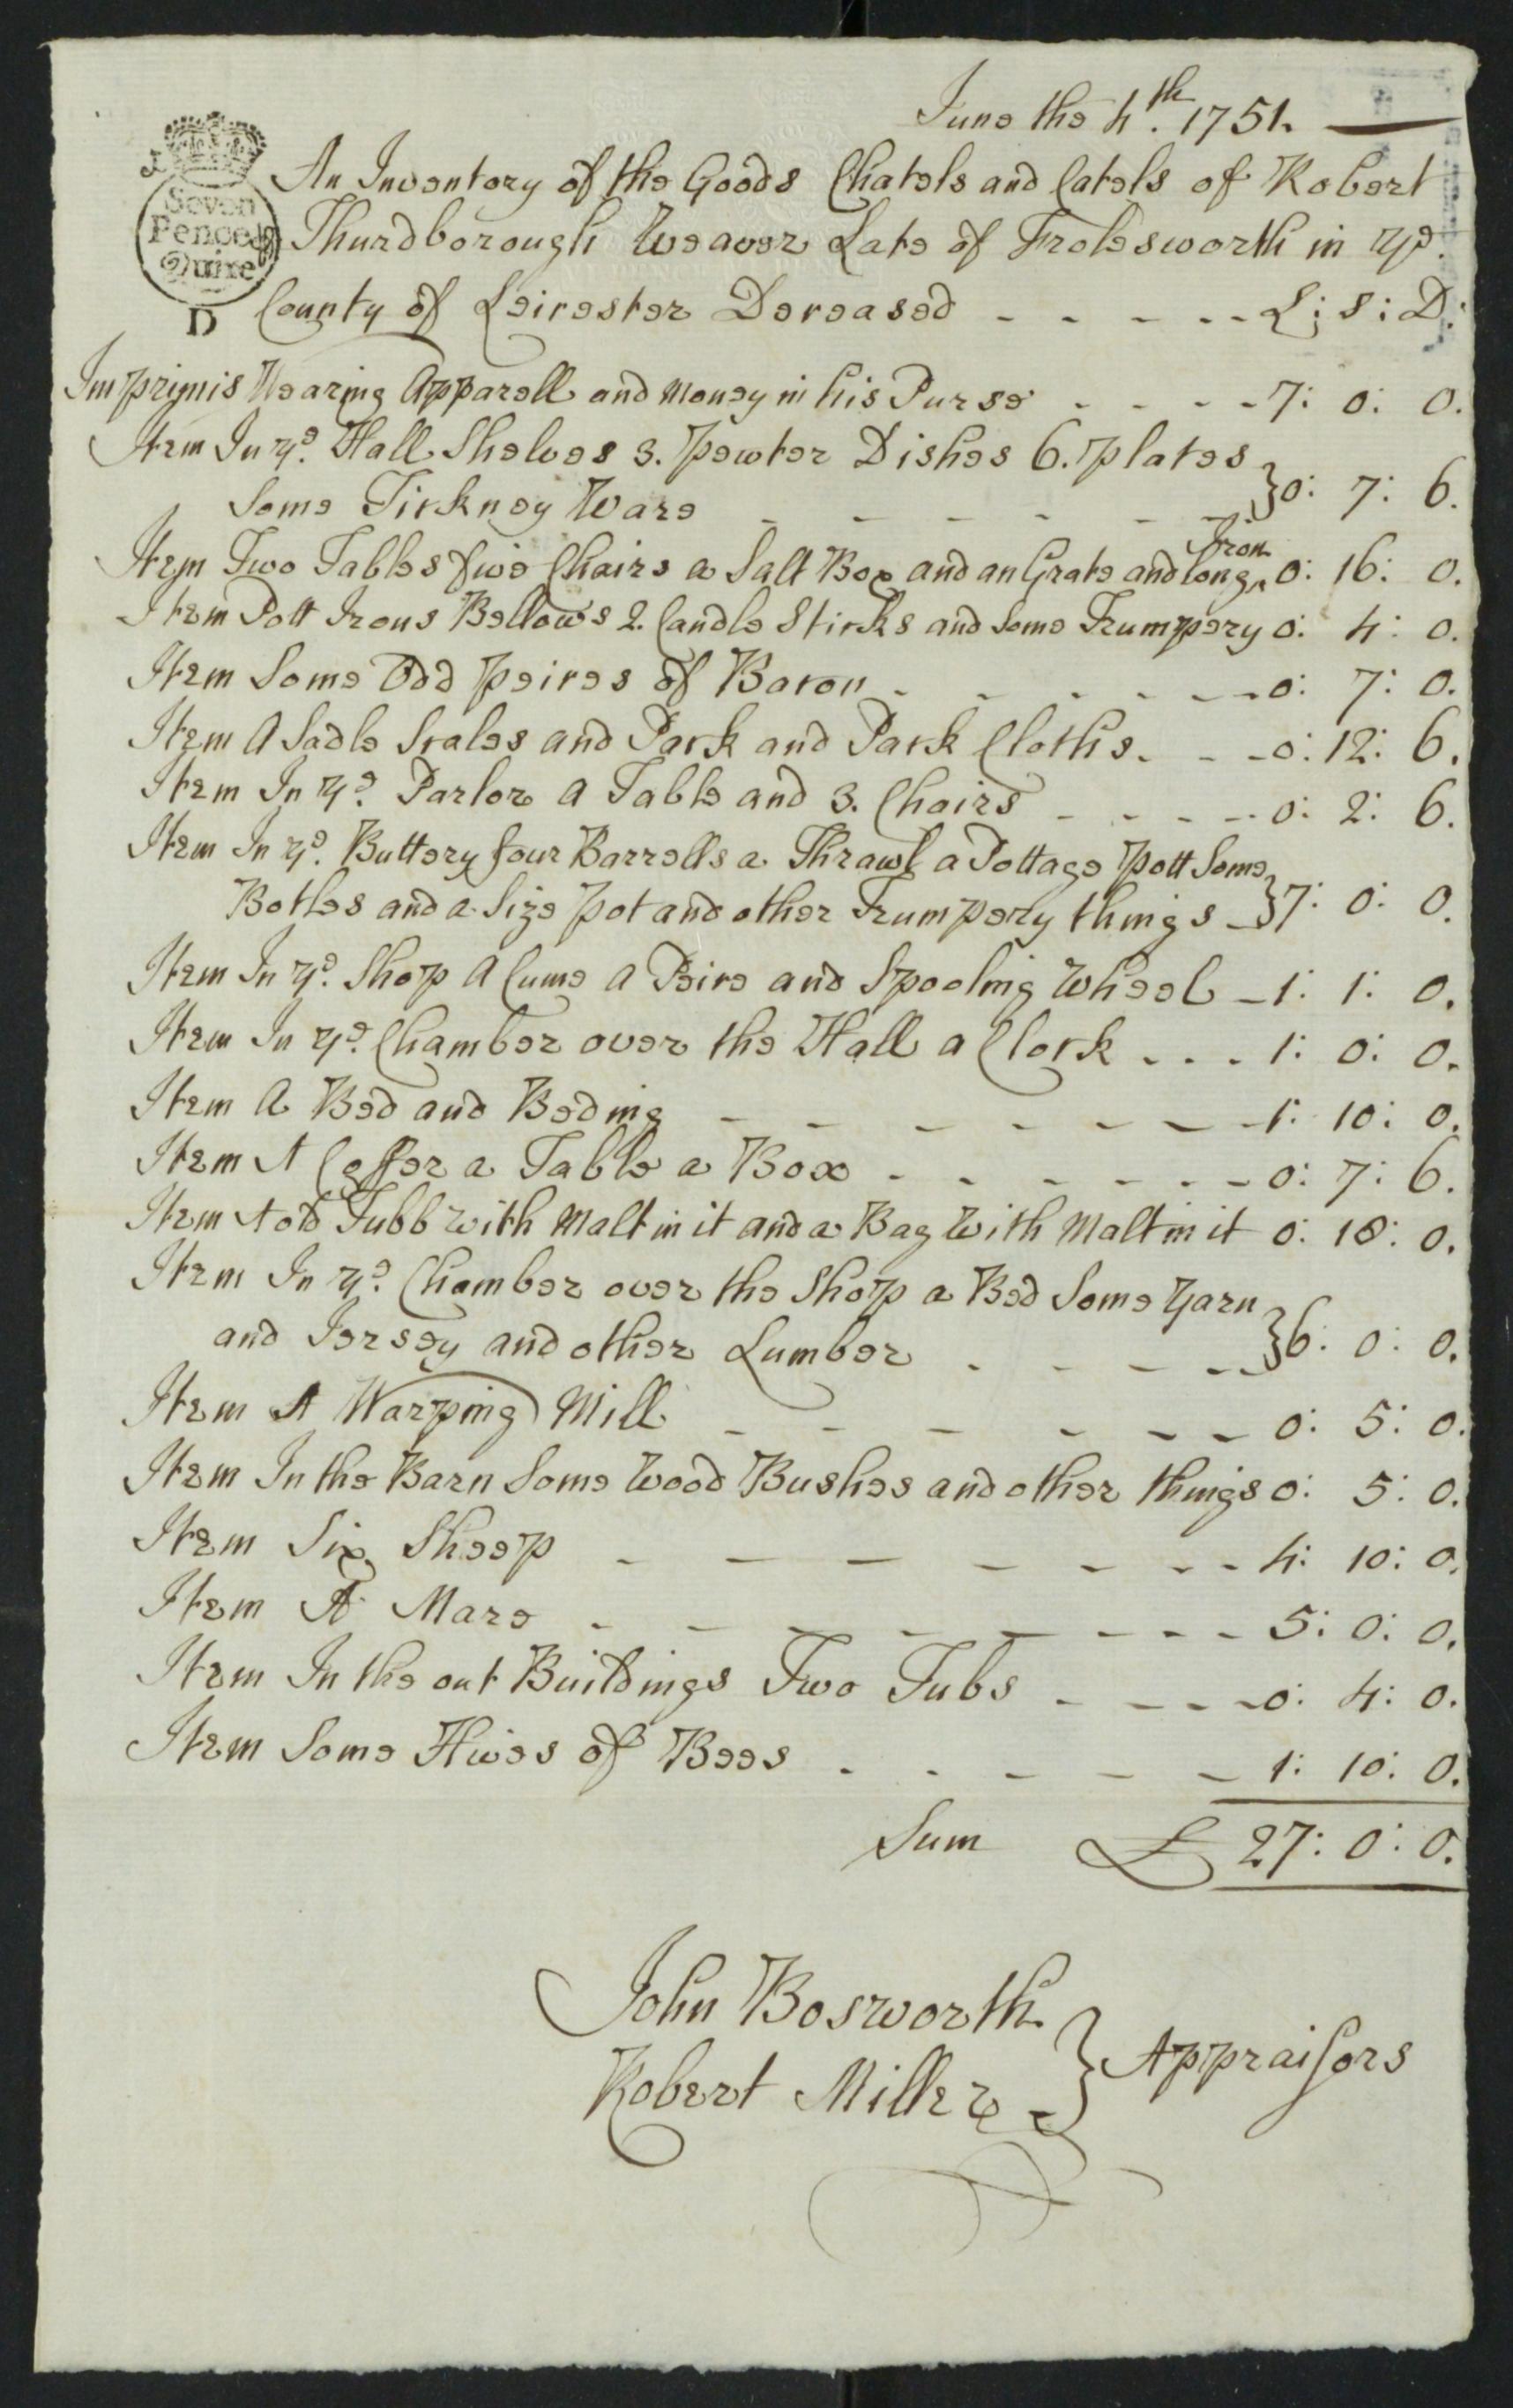 June the 4th. 1751.
J
Seven
Pence pr
Quire
D
An Inventory of the Goods Chatels and Catels of Robert
Thurdborough Weaver Late of Frolesworth in ye.
County of Leicester Deceased - - - - - L; S: D:
Imprimis Wearing Apparell and Money in his Purse - - - - 7: 0: 0.
Item In ye. Hall Shelves 3. Pewter Dishes 6. plates
Some Tickney Ware - - - - - - } 0: 7: 6.
Item Two Tables five Chairs a Salt Box and an Grate and Iron 0: 16: 0.
Item Pott Irons Bellows 2. Candle Sticks and Some Trumpery 0: 4: 0.
Item Some Odd Peices of Bacon - - - - - - 0: 7: 0.
Item A Sadle Scales and Pack and Pack Cloths. - - 0: 12: 6.
Item In ye. Parlor a Table and 3. Chairs - - - - - 0: 2: 6.
Item In ye. Buttery four Barrells a Thrawl a Pottage Pott Some
Botles and a Size Pot and other Trumpery things - } 7: 0: 0.
Item In ye. Shop A Lume a Peice and Spooling Wheel - 1: 1: 0.
Item In ye. Chamber over the Hall a Clock - - - 1: 0: 0.
Item A Bed and Beding - - - - - - - 1: 10: 0.
Item A Coffer a Table a Box - - - - - - 0: 7: 6.
Item A old Tubb with Malt in it and a Bag With Malt in it 0: 18: 0.
Item In ye. Chamber over the Shop a Bed Some Yarn
and Jersey and other Lumber - - - - - } 6: 0: 0.
Item A Warping Mill - - - - - - - 0: 5: 0.
Item In the Barn Some Wood Bushes and other things 0: 5: 0.
Item Six Sheep - - - - - - - - 4: 10: 0.
Item A Mare - - - - - - - - - 5: 0: 0.
Item In the out Buildings Two Tubs - - - - 0: 4: 0.
Item Some Hives of Bees - - - - - 1: 10: 0.
Sum £ 27: 0: 0.
John Bosworth
Robert Miller } Appraisors